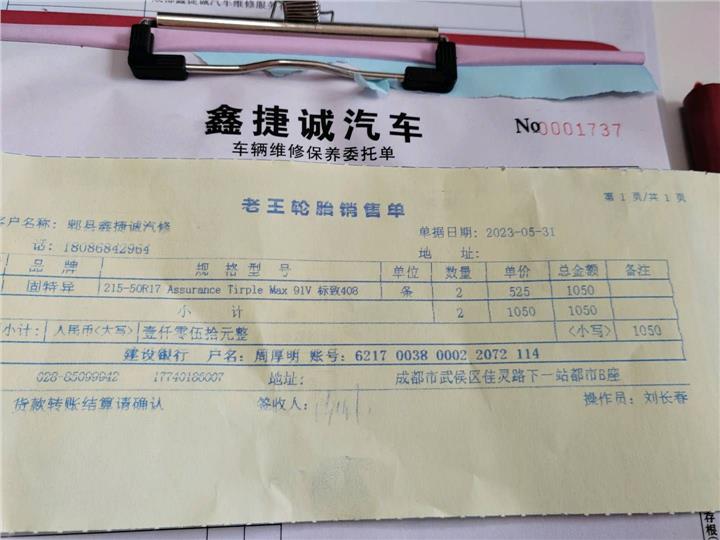 成都鑫捷诚汽车维修服务
鑫捷诚汽车
No 0001737
车辆维修保养委托单
第 1 页/共 1 页
老王轮胎销售单
客户名称: 郫县鑫捷诚汽修
单据日期: 2023-05-31
话: 18086842964
地 址:
品 牌 规 格 型 号 单位 数量 单价 总金额 备注
固特异 215-50R17 Assurance Tirple Max 91V 标致408 条 2 525 1050
小 计 2 1050 1050
小计: 人民币<大写> 壹仟零伍拾元整 <小写> 1050
建设银行 户名: 周厚明 账号: 6217 0038 0002 2072 114
028-85099942 17740186007 地址: 成都市武侯区佳灵路下一站都市B座
货款转账结算请确认 签收人: 操作员: 刘长春
存根